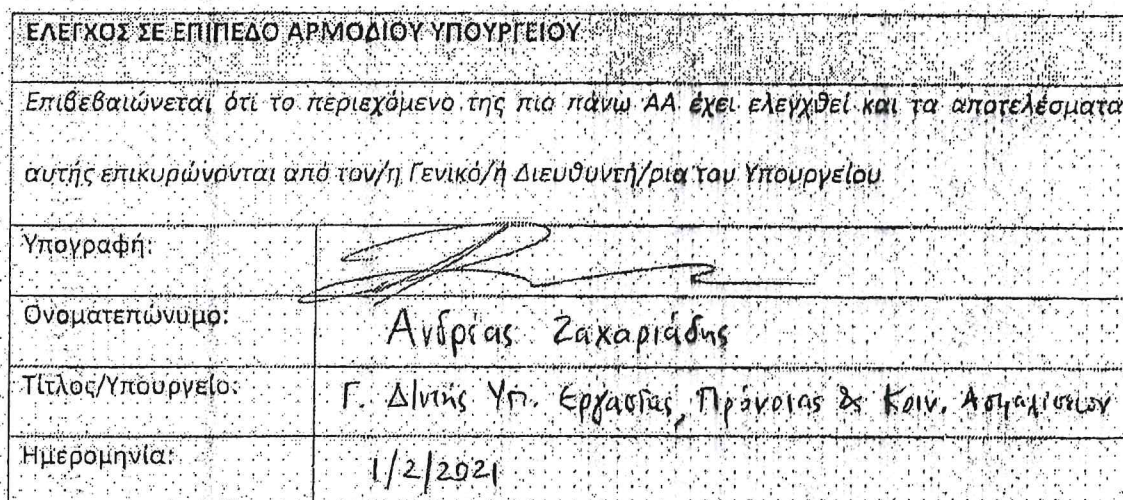 ΕΛΕΓΧΟΣ ΣΕ ΕΠΙΠΕΔΟ ΑΡΜΟΔΙΟΥ ΥΠΟΥΡΓΕΙΟΥ
Επιβεβαιώνεται ότι το περιεχόμενο της πιο πάνω ΑΑ έχει ελεγχθεί και τα αποτελέσματα
αυτής επικυρώνονται από τον/η Γενικό/ή Διευθυντή/ρια του Υπουργείου
Υπογραφή:
Ονοματεπώνυμο: Ανδρέας Ζαχαριάδης
Τίτλος/Υπουργείο: Γ. Δ/ντής Υπ. Εργασίας, Πρόνοιας & Κοιν. Ασφαλίσεων
Ημερομηνία: 1/2/2021